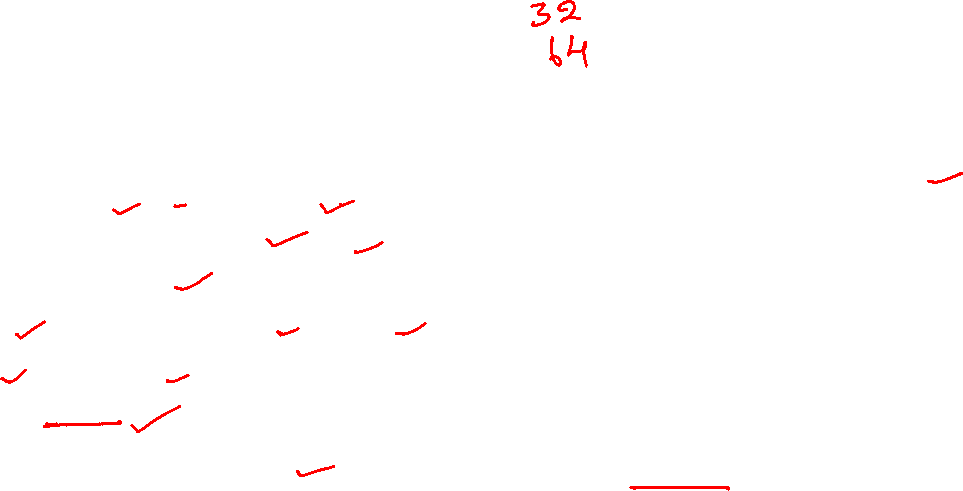 32
64